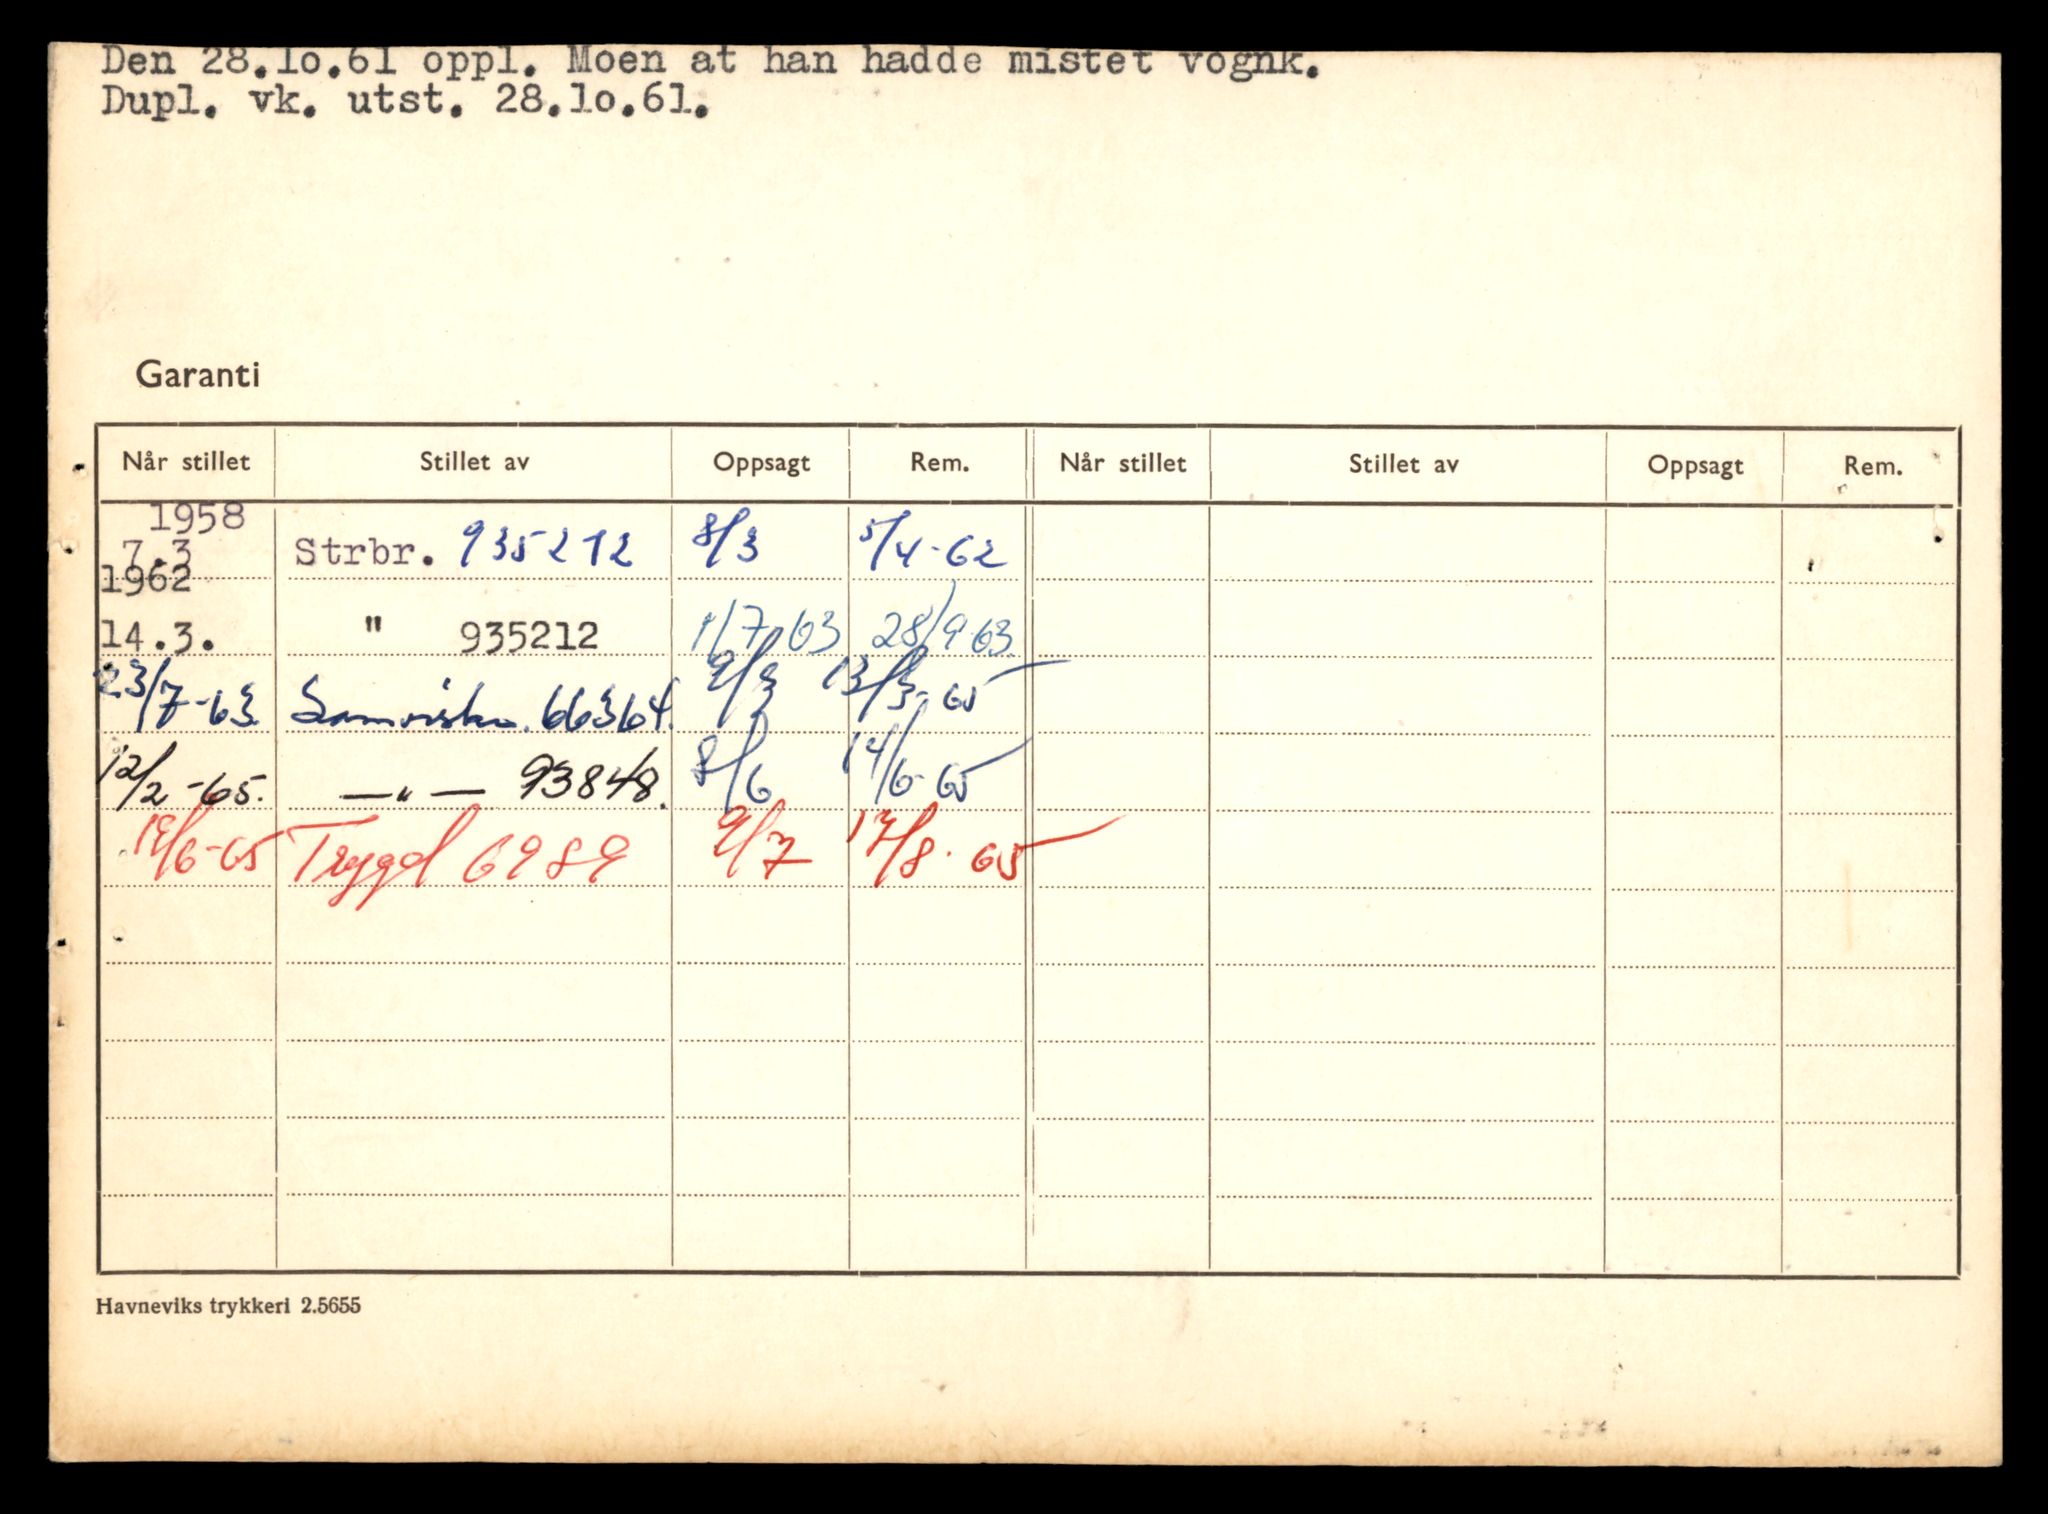 Den 28.10.61 oppl. Moen at han hadde mistet vognk.
Dupl. vk. utst. 28.10.61.
Garanti
Når stillet Stillet av Oppsagt Rem. Når stillet Stillet av Oppsagt Rem.
1958
7.3 Strbr. 935212 8/3 5/4-62
1962
14.3. " 935212 1/7 63 28/9-63
23/7-63. Samvirke. 66364. 9/3 13/3-65
12/2-65. —"— 93848. 8/6 14/6-65
/6-65 Trygd 6989 9/7 17/8-65
Havneviks trykkeri 2.5655